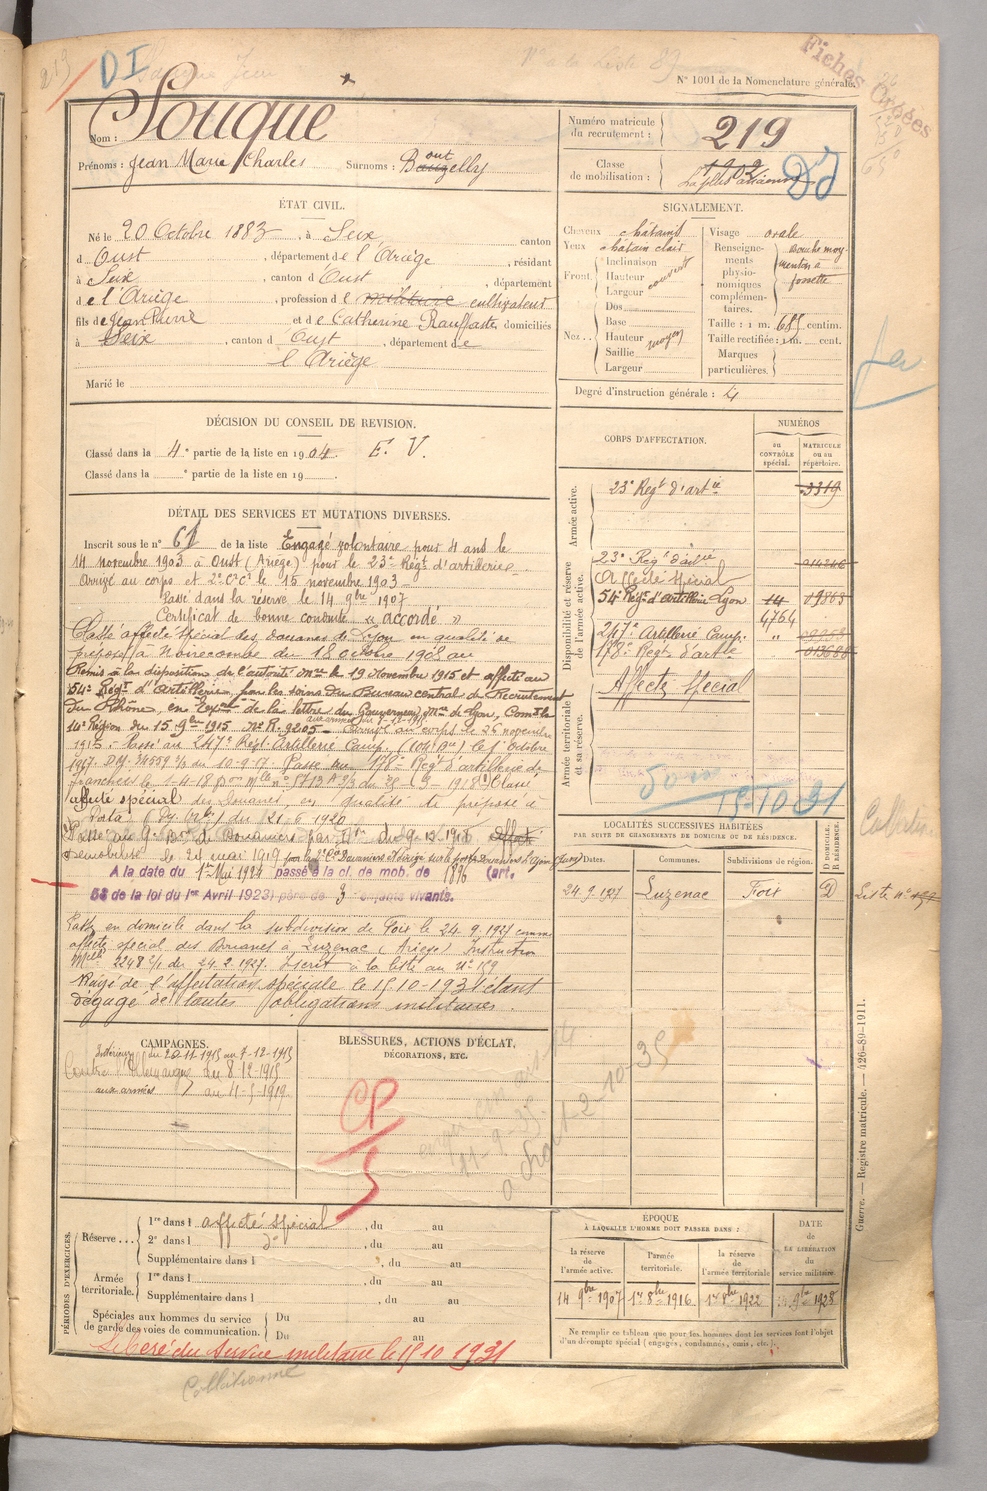 213
DI
N° à la Liste 89
N° 1001 de la Nomenclature générale.
Fiches Croisées
Nom : Souque
Prénoms : Jean Marie Charles Surnoms : Bontzelly
Numéro matricule du recrutement : 219
Classe de mobilisation : 1902
La plus ancienne
ÉTAT CIVIL.
Né le 20 Octobre 1883, à Seix canton
d Oust, département de l'Ariège, résidant
à Seix, canton d Oust, département
de l'Ariège, profession de militaire cultivateur
fils de Jean Pierre et de Catherine Rauffaste, domiciliés
à Seix, canton d Oust, département de
l'Ariège
Marié le
SIGNALEMENT.
Cheveux châtains
Yeux châtain clair
Front. Inclinaison
Hauteur couvert
Largeur
Nez. Dos
Base
Hauteur moyen
Saillie
Largeur
Visage ovale
Renseignements physionomiques complémentaires. Bouche moy. menton à fossette
Taille : 1 m. 685 centim.
Taille rectifiée : 1 m. cent.
Marques particulières.
Degré d'instruction générale : 4
DÉCISION DU CONSEIL DE REVISION.
Classé dans la 4e partie de la liste en 1904. E. V.
Classé dans la e partie de la liste en 19
DÉTAIL DES SERVICES ET MUTATIONS DIVERSES.
Inscrit sous le n° 61 de la liste Engagé volontaire pour 4 ans le
14 novembre 1903 à Oust (Ariège) pour le 23e Régt d'artillerie.
Arrivé au corps et 2e Cr Ct le 15 novembre 1903
Passé dans la réserve le 14 9bre 1907
Certificat de bonne conduite « accordé »
Classé affecté spécial des douanes de Lyon en qualité de
préposé à Noirecombe du 18 octobre 1908 au
Remis à la disposition de l'autorité Mre le 19 Novembre 1915 et affecté au
54e Régt d'Artillerie, par les soins du Bureau central de Recrutement
du Rhône, en Exon de la lettre du Gouverneur Mre de Lyon, Comt la
14e Région du 15 9bre 1915 N° R. 9205 - Arrivé au corps le 26 novembre
1915. Passé au 247e Régt Artillerie Camp. (104e Bie) le 1er octobre
1917. DM 34559 2/3 du 10-9-17. Passé au 178e Régt d'artillerie de
tranchées le 1-4-18
affecté spécial des Douanes, en qualité de préposé à
du 21-6 1920
Démobilisé le 24 mai 1919
A la date du 1er Mai 1924 passé à la cl. de mob. de 1896 (art.
58 de la loi du 1er Avril 1923) père de 3 enfants vivants.
Passé en domicile dans la subdivision de Foix le 24.9.1927 comme
affecté spécial des Douanes à Luzenac (Ariège) Instruction
Mlle 2248 2/1 du 24.2.1927. Inscrit à la liste au N° 159
Rayé de l'affectation spéciale le 15-10-1931 étant
dégagé de toutes obligations militaires.
CORPS D'AFFECTATION.
NUMÉROS
au contrôle spécial.
matricule ou au répertoire.
Armée active.
23e Régt d'artie 3319
Disponibilité et réserve de l'armée active.
23e Régt d'artie 014346
Affecté Spécial
54e Régt d'artillerie Lyon 14 09863
4764
247e Artillerie Camp. "
178e Régt d'artie " 013688
Armée territoriale et sa réserve.
Affecté Spécial
15-10 31
LOCALITÉS SUCCESSIVES HABITÉES
PAR SUITE DE CHANGEMENTS DE DOMICILE OU DE RÉSIDENCE.
Dates. Communes. Subdivisions de région. D DOMICILE. R RÉSIDENCE.
24.9.1927 Luzenac Foix D
CAMPAGNES.
Intérieur du 20-11-1915 au 7-12-1915
Contre l'Allemagne du 8-12-1915
aux armées au 4-5-1919
BLESSURES, ACTIONS D'ÉCLAT,
DÉCORATIONS, ETC.
CP
5
11-9-35
2-10-35
PÉRIODES D'EXERCICES.
Réserve... 1re dans l affecté spécial, du au
2e dans l do, du au
Supplémentaire dans l, du au
Armée territoriale. 1re dans l, du au
Supplémentaire dans l, du au
Spéciales aux hommes du service de garde des voies de communication. Du au
Du au
Libéré du service militaire le 15 10 1931
Collationné
EPOQUE
À LAQUELLE L'HOMME DOIT PASSER DANS :
la réserve de l'armée active.
l'armée territoriale.
la réserve de l'armée territoriale
DATE de LA LIBÉRATION du service militaire.
14 9bre 1907 1er 8bre 1916 1er 8bre 1922 9bre 1928
Ne remplir ce tableau que pour les hommes dont les services font l'objet
d'un décompte spécial (engagés, condamnés, omis, etc.).
Guerre. — Registre matricule. — 426-89-1911.